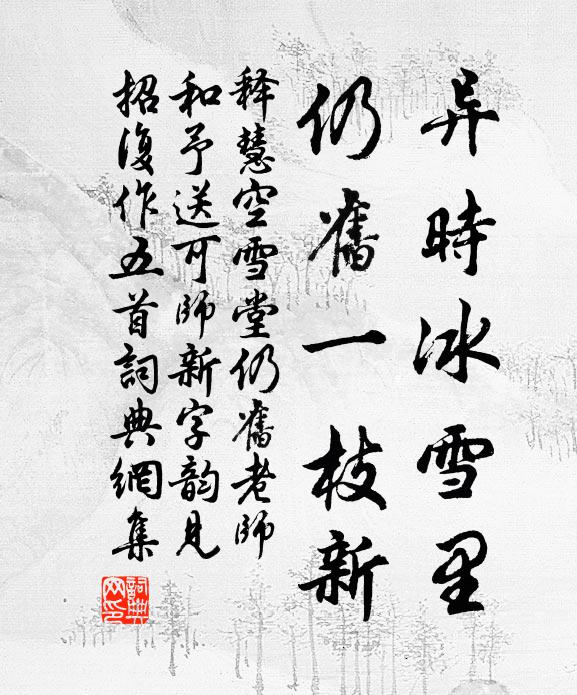 异時冰雪里
仍舊一枝新
释慧空雪堂仍舊老師
和予送可師新字韵見
招復作五首詞典網集
詞典
网印